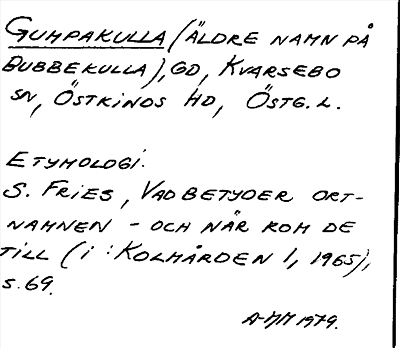 GUMPAKULLA (ÄLDRE NAMN PÅ
BUBBEKULLA), GD, KVARSEBO
SN, ÖSTKINDS HD, ÖSTG. L.
ETYMOLOGI.
S. FRIES, VAD BETYDER ORT-
NAMNEN - OCH NÄR KOM DE
TILL (i : KOLMÅRDEN 1, 1965),
S. 69.
A-MM 1979.